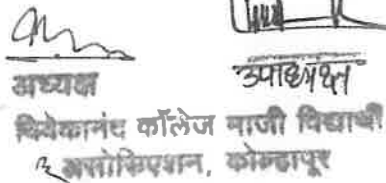 अध्यक्ष उपाध्यक्ष
विवेकानंद कॉलेज माजी विद्यार्थी
असोसिएशन, कोल्हापूर